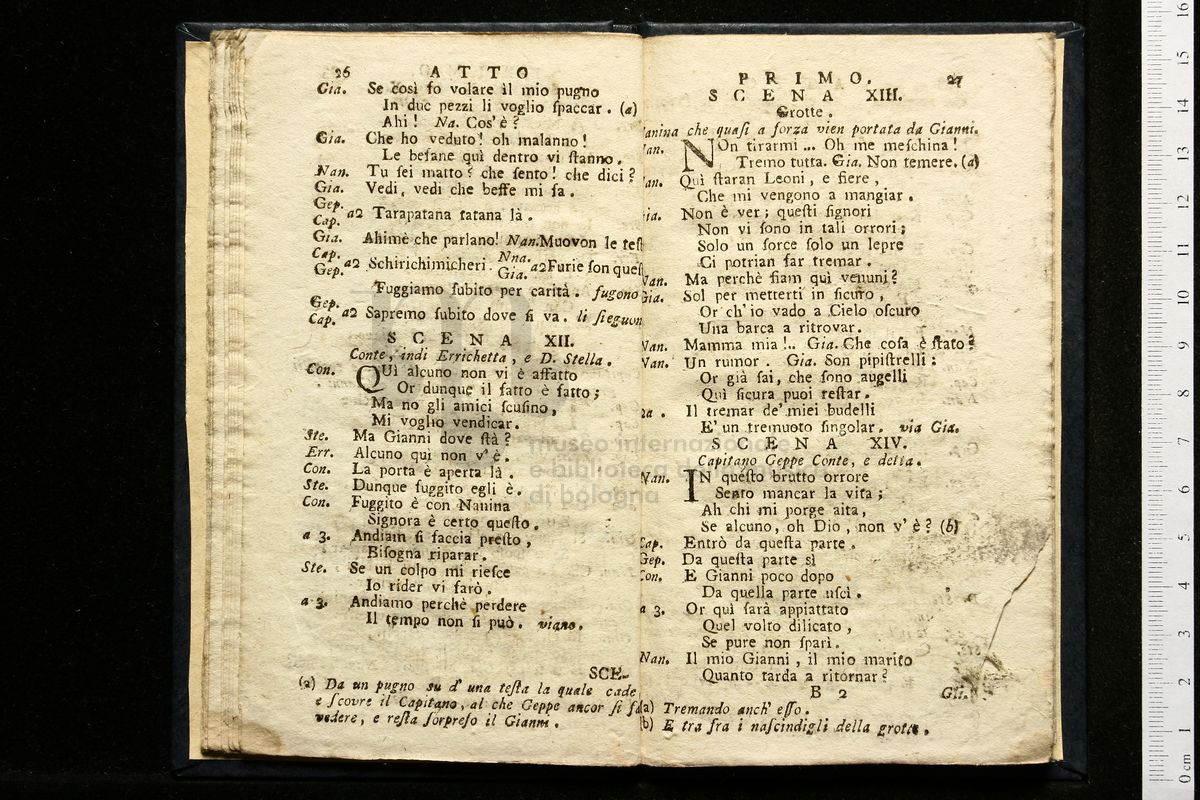 26 ATTO
Gia. Se così fo volare il mio pugno
In due pezzi li voglio ſpaccar. (a)
Ahi! Na. Cos'è?
Gia. Che ho veduto! oh malanno!
Le befane quì dentro vi ſtanno.
Nan. Tu ſei matto? che ſento! che dici?
Gia. Vedi, vedi che beffe mi fa.
Gep.
Cap. a2 Tarapatana tatana là.
Gia. Ahimè che parlano! Nan. Muovon le teſ
Cap.
Gep. a2 Schirichimicheri. Nna. Gia. a2 Furie ſon queſ
Fuggiamo ſubito per carità. fugono
Gep.
Cap. a2 Sapremo ſubito dove ſi va. li ſieguon
SCENA XII.
Conte, indi Errichetta, e D. Stella.
Con. QUì alcuno non vi è affatto
Or dunque il fatto è fatto;
Ma no gli amici ſcuſino,
Mi voglio vendicar.
Ste. Ma Gianni dove ſtà?
Err. Alcuno qui non v'è.
Con. La porta è aperta là.
Ste. Dunque fuggito egli è.
Con. Fuggito è con Nanina
Signora è certo queſto.
a 3. Andiam ſi faccia preſto,
Biſogna riparar.
Ste. Se un colpo mi rieſce
Io rider vi farò.
a 3. Andiamo perchè perdere
Il tempo non ſi può. viano.
SCE-
(a) Da un pugno su d'una teſta la quale cade
e ſcovre il Capitano, al che Geppe ancor ſi fa
vedere, e reſta ſorpreſo il Gianni.
PRIMO. 27
SCENA XIII.
Grotte.
anina che quaſi a forza vien portata da Gianni.
Nan. NOn tirarmi ... Oh me meſchina!
Tremo tutta. Gia. Non temere. (a)
an. Quì ſtaran Leoni, e fiere,
Che mi vengono a mangiar.
ia. Non è ver; queſti ſignori
Non vi ſono in tali orrori;
Solo un ſorce ſolo un lepre
Ci potrian far tremar.
Nan. Ma perchè ſiam quì venuni?
Gia. Sol per metterti in ſicuro,
Or ch'io vado a Cielo oſcuro
Una barca a ritrovar.
Nan. Mamma mia!.. Gia. Che coſa è ſtato?
Nan. Un rumor. Gia. Son pipiſtrelli:
Or già ſai, che ſono augelli
Quì ſicura puoi reſtar.
2a. Il tremar de' miei budelli
E' un tremuoto ſingolar. via Gia.
SCENA XIV.
Capitano Geppe Conte, e detta.
Nan. IN queſto brutto orrore
Sento mancar la vita;
Ah chi mi porge aita,
Se alcuno, oh Dio, non v'è? (b)
Cap. Entrò da queſta parte.
Gep. Da queſta parte sì
Con. E Gianni poco dopo
Da quella parte uſcì.
a 3. Or quì ſarà appiattato
Quel volto dilicato,
Se pure non ſparì.
Nan. Il mio Gianni, il mio marito
Quanto tarda a ritornar?
B 2 Gli.
(a) Tremando anch' eſſo.
(b) E tra fra i naſcindigli della grotte.
museo internazionale
e biblioteca
di bologna
0 cm 1 2 3 4 5 6 7 8 9 10 11 12 13 14 15 16